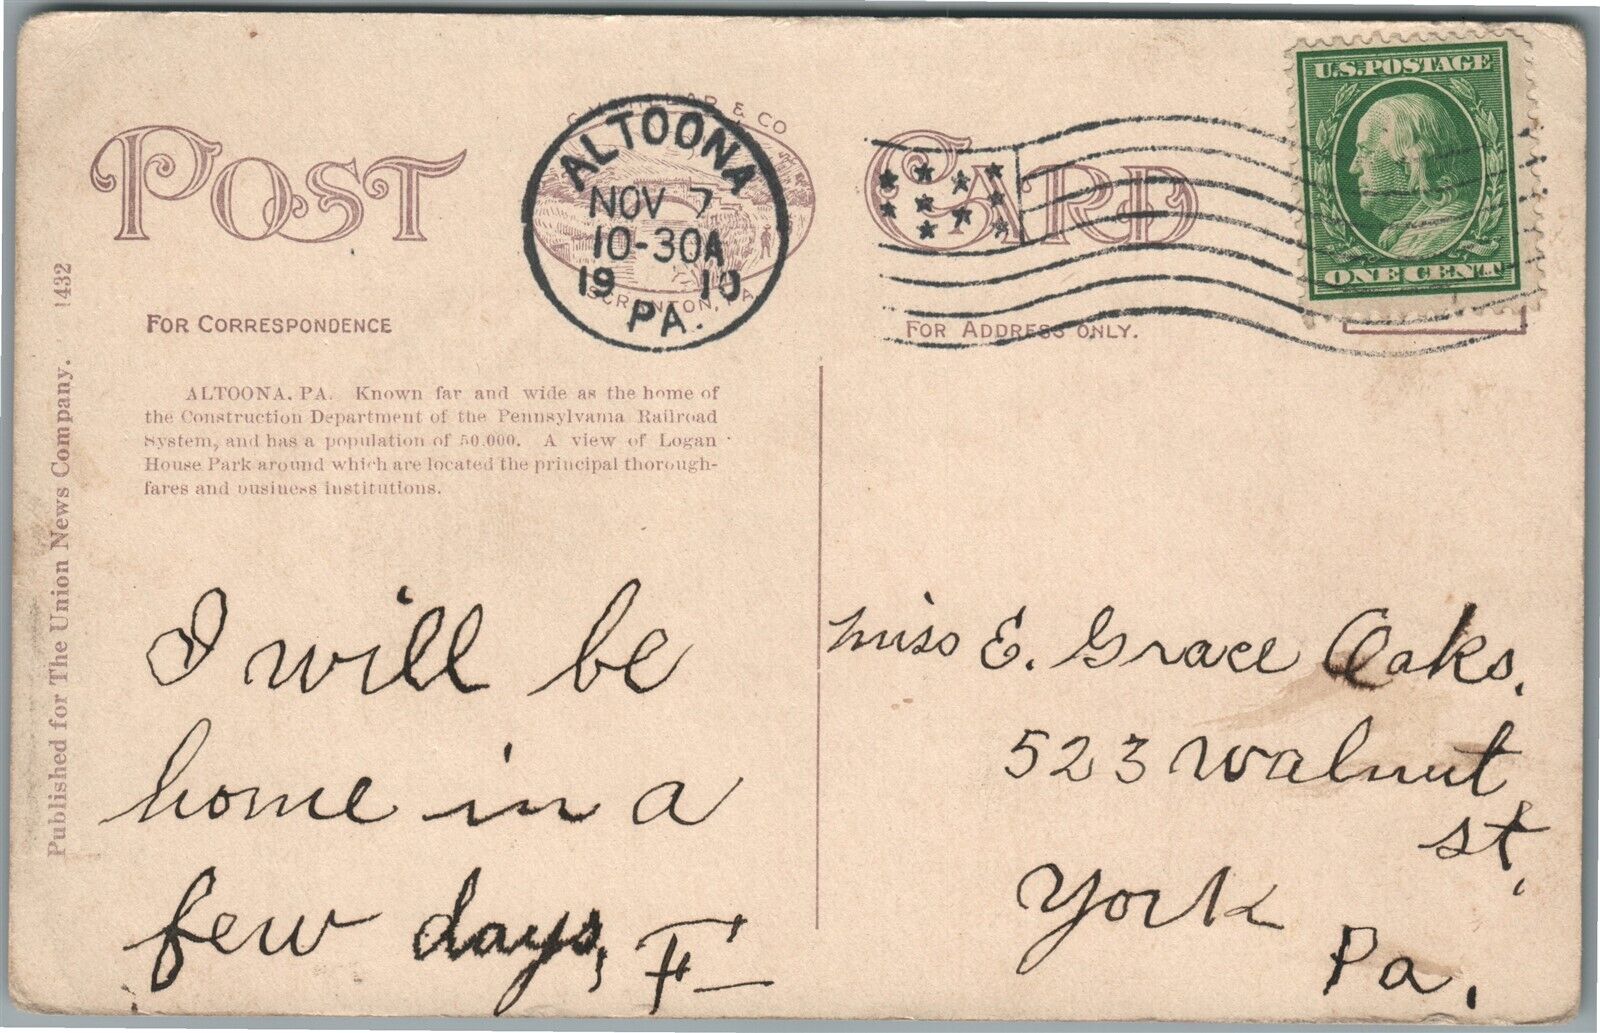 POST CARD
& CO
SCRANTON, PA
ALTOONA
NOV 7
10-30A
1910
PA.
U.S.POSTAGE
ONE CENT
FOR CORRESPONDENCE
FOR ADDRESS ONLY.
ALTOONA, PA. Known far and wide as the home of
the Construction Department of the Pennsylvania Railroad
System, and has a population of 50.000. A view of Logan
House Park around which are located the principal thorough-
fares and business institutions.
Published for The Union News Company. 1432
I will be
home in a
few days, F
Miss E. Grace Oaks.
523 Walnut
st,
York
Pa.